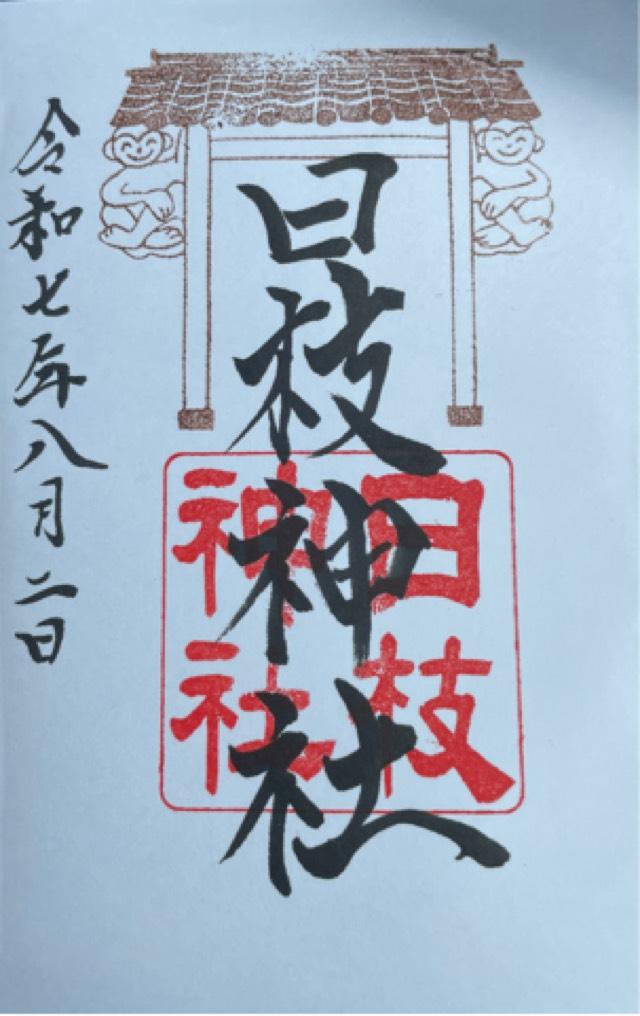 日枝神社
日枝
神社
令和七年八月二日